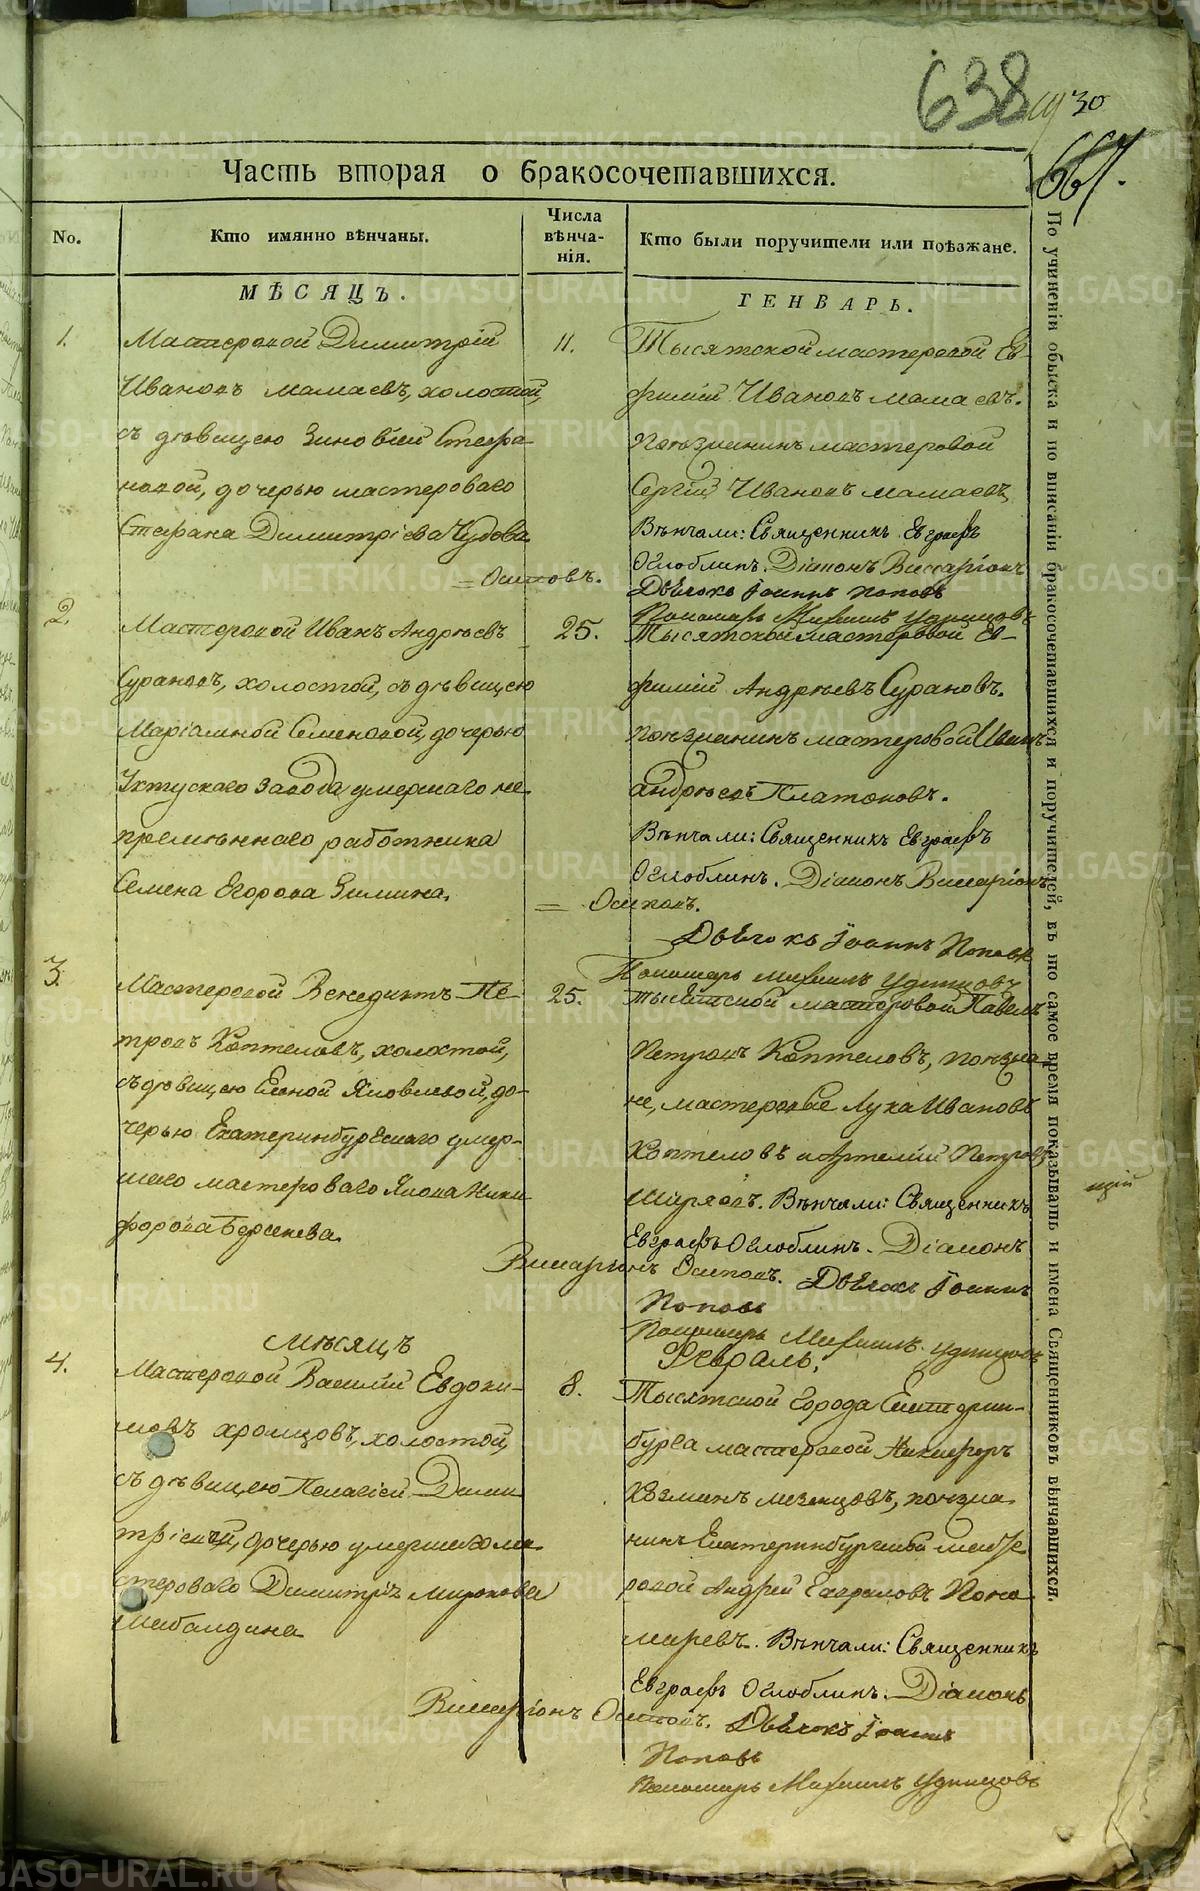 638
1930
667.
Часть вторая о бракосочетавшихся.
No.
Кто имянно вѣнчаны.
Числа вѣнча-нія.
Кто были поручители или поѣзжане.
По учиненіи обыска и по вписаніи бракосочетавшихся и поручителей, въ то самое время показывать и имена Священниковъ вѣнчавшихся.
МѢСЯЦЪ.
ГЕНВАРЬ.
1.
Мастеровой Димитрій
Ивановъ Мамаевъ, холостой,
съ дѣвицею Зиновіей Стефа-
новой, дочерью мастероваго
Стефана Димитріева Чудова
11.
Тысятской мастеровой Ев-
фимій Ивановъ Мамаевъ.
Поѣзжанинъ мастеровой
Сергій Ивановъ Мамаевъ,
Вѣнчали: Священникъ Евграфъ
Оглоблинъ. Діаконъ Виссаріонъ
= Осиповъ.
Дьячокъ Іоаннъ Поповъ
Пономарь Михаилъ Удинцовъ
2.
Мастеровой Иванъ Андреевъ
Сурановъ, холостой, съ дѣвицею
Маріамной Семеновой, дочерью
Уктускаго завода умершаго не-
премѣннаго работника
Семена Егорова Зимина.
25.
Тысятской мастеровой Ев-
фимій Андреевъ Сурановъ.
Поѣзжанинъ мастеровой Иванъ
Андреевъ Платоновъ.
Вѣнчали: Священникъ Евграфъ
Оглоблинъ. Діаконъ Висаріонъ
= Осиповъ.
Дьячокъ Іоаннъ Поповъ
Пономарь Михаилъ Удинцовъ
3.
Мастеровой Венедиктъ Пе-
тровъ Коптеловъ, холостой,
съ дѣвицею Еленой Яковлевой, до-
черью Екатеринбургскаго умер-
шаго мастероваго Якова Ники-
форова Берсенева.
25.
Тысятской мастеровой Павелъ
Петровъ Коптеловъ, поѣзжа-
не, мастеровые Лука Ивановъ
Коптеловъ и Артемій Петровъ
Ширяевъ. Вѣнчали: Священникъ
Евграфъ Оглоблинъ. Діаконъ
Висаріонъ Осиповъ. Дьячокъ Іоаннъ
Поповъ
Пономарь Михаилъ Удинцовъ
Мѣсяцъ
Февраль,
4.
Мастеровой Василій Евдоки-
мовъ Хромцовъ, холостой,
съ дѣвицею Пелагіей Дими-
тріевой, дочерью умершаго ма-
стероваго Димитрія Миронова
Шабалдина
8.
Тысятской города Екатерин-
бурга мастеровой Никифоръ
Козминъ Мезенцовъ, поѣзжа-
нинъ Екатеринбургской масте-
ровой Андрей Евграфовъ Поно-
маревъ. Вѣнчали: Священникъ
Евграфъ Оглоблинъ. Діаконъ
Висаріонъ Осиповъ. Дьячокъ Іоаннъ
Поповъ
Пономарь Михаилъ Удинцовъ